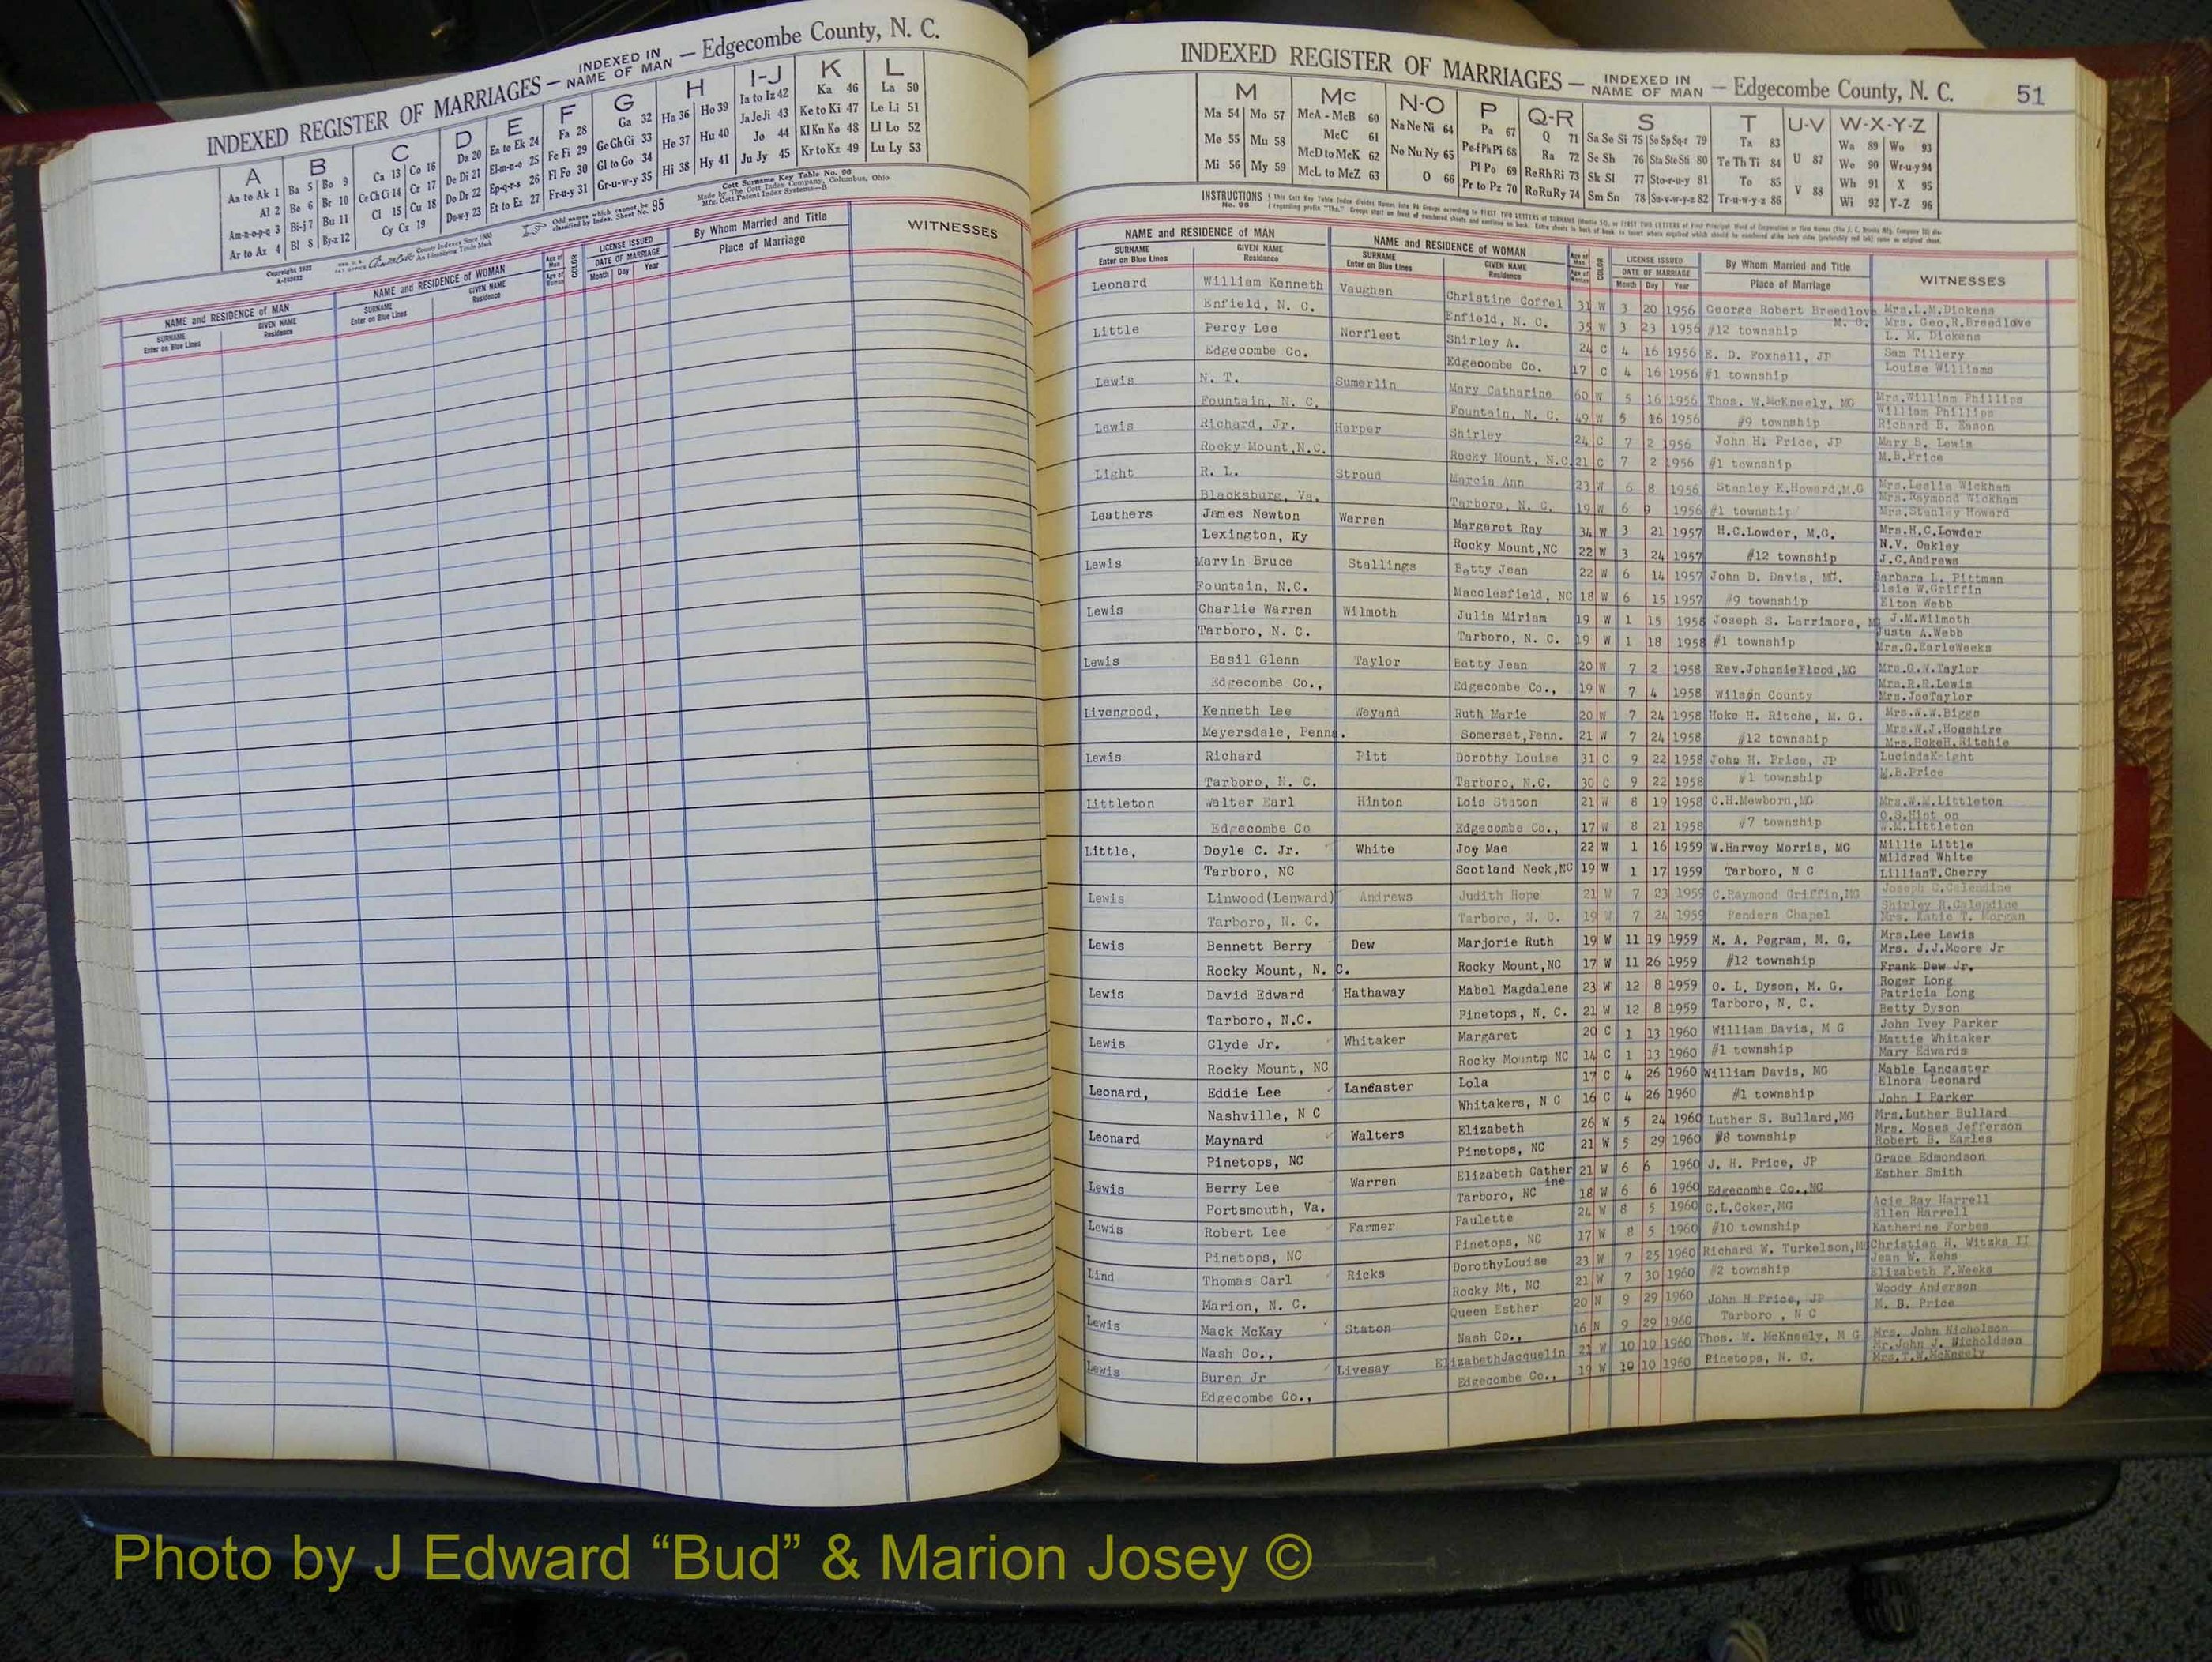 INDEXED REGISTER OF MARRIAGES — INDEXED IN NAME OF MAN — Edgecombe County, N. C.
A B C D E F G H I-J K L
Aa to Ak 1 Ba 5 Bo 9 Ca 13 Co 16 Da 20 Ea to Ek 24 Fa 28 Ga 32 Ha 36 Ho 39 Ia to Iz 42 Ka 46 La 50
Al 2 Be 6 Br 10 Ce Ch Ci 14 Cr 17 De Di 21 El-m-n-o 25 Fe Fi 29 Ge Gh Gi 33 He 37 Hu 40 Ja Je Ji 43 Ke to Ki 47 Le Li 51
Am-n-o-p-q 3 Bi-j 7 Bu 11 Cl 15 Cu 18 Do Dr 22 Ep-q-r-s 26 Fl Fo 30 Gl to Go 34 Hi 38 Hy 41 Jo 44 Kl Kn Ko 48 Ll Lo 52
Ar to Az 4 Bl 8 By-z 12 Cy Cz 19 Du-w-y 23 Et to Ez 27 Fr-u-y 31 Gr-u-w-y 35 Ju Jy 45 Kr to Kz 49 Lu Ly 53
Copyright 1932
Odd names which cannot be classified by Index. Sheet No. 95
Cott Surname Key Table No. 96
Made by The Cott Index Company, Columbus, Ohio
NAME and RESIDENCE OF MAN NAME and RESIDENCE OF WOMAN Age of Man Age of Woman COLOR LICENSE ISSUED DATE OF MARRIAGE By Whom Married and Title WITNESSES
SURNAME Enter on Blue Lines GIVEN NAME Residence SURNAME Enter on Blue Lines GIVEN NAME Residence Month Day Year Place of Marriage
INDEXED REGISTER OF MARRIAGES — INDEXED IN NAME OF MAN — Edgecombe County, N. C. 51
M Mc N-O P Q-R S T U-V W-X-Y-Z
Ma 54 Mo 57 McA - McB 60 Na Ne Ni 64 Pa 67 Q 71 Sa Se Si 75 So Sp Sq-r 79 Ta 83 Wa 89 Wo 93
Me 55 Mu 58 McC 61 No Nu Ny 65 Pe-f Ph Pi 68 Ra 72 Sc Sh 76 Sta Ste Sti 80 Te Th Ti 84 U 87 We 90 Wr-u-y 94
Mi 56 My 59 McD to McK 62 O 66 Pl Po 69 Re Rh Ri 73 Sk Sl 77 Sto-r-u-y 81 To 85 V 88 Wh 91 X 95
McL to McZ 63 Pr to Pz 70 Ro Ru Ry 74 Sm Sn 78 Su-v-w-y-z 82 Tr-u-w-y-z 86 Wi 92 Y-Z 96
INSTRUCTIONS No. 96
NAME and RESIDENCE OF MAN NAME and RESIDENCE OF WOMAN Age of Man Age of Woman COLOR LICENSE ISSUED DATE OF MARRIAGE By Whom Married and Title WITNESSES
SURNAME Enter on Blue Lines GIVEN NAME Residence SURNAME Enter on Blue Lines GIVEN NAME Residence Month Day Year Place of Marriage
Leonard William Kenneth Vaughan Christine Coffel 31 W 3 20 1956 George Robert Breedlove M. G. Mrs.L.M.Dickens
Enfield, N. C. Enfield, N. C. 35 W 3 23 1956 #12 township Mrs. Geo.R.Breedlove
L. M. Dickens
Little Percy Lee Norfleet Shirley A. 24 C 4 16 1956 E. D. Foxhall, JP Sam Tillery
Edgecombe Co. Edgecombe Co. 17 C 4 16 1956 #1 township Louise Williams
Lewis N. T. Sumerlin Mary Catharine 60 W 5 16 1956 Thos. W.McKneely, MG Mrs.William Phillips
Fountain, N. C. Fountain, N. C. 49 W 5 16 1956 #9 township William Phillips
Richard B. Eason
Lewis Richard, Jr. Harper Shirley 24 C 7 2 1956 John H. Price, JP Mary B. Lewis
Rocky Mount,N.C. Rocky Mount, N.C. 21 C 7 2 1956 #1 township M.B.Price
Light R. L. Stroud Marcia Ann 23 W 6 8 1956 Stanley K.Howard,M.G Mrs.Leslie Wickham
Blacksburg, Va. Tarboro, N. C. 19 W 6 9 1956 #1 township Mrs.Raymond Wickham
Mrs.Stanley Howard
Leathers James Newton Warren Margaret Ray 34 W 3 21 1957 H.C.Lowder, M.G. Mrs.H.C.Lowder
Lexington, Ky Rocky Mount,NC 22 W 3 24 1957 #12 township N.V. Oakley
J.C.Andrews
Lewis Marvin Bruce Stallings Betty Jean 22 W 6 14 1957 John D. Davis, MG. Barbara L. Pittman
Fountain, N.C. Macclesfield, NC 18 W 6 15 1957 #9 township Elsie W.Griffin
Elton Webb
Lewis Charlie Warren Wilmoth Julia Miriam 19 W 1 15 1958 Joseph S. Larrimore, MG J.M.Wilmoth
Tarboro, N. C. Tarboro, N. C. 19 W 1 18 1958 #1 township Justa A.Webb
Mrs.C.EarleWeeks
Lewis Basil Glenn Taylor Betty Jean 20 W 7 2 1958 Rev.JohnnieFlood,MG Mrs.C.W.Taylor
Edgecombe Co., Edgecombe Co., 19 W 7 4 1958 Wilson County Mrs.R.R.Lewis
Mrs.JoeTaylor
Livengood, Kenneth Lee Weyand Ruth Marie 20 W 7 24 1958 Hoke H. Ritche, M. G. Mrs.W.W.Biggs
Meyersdale, Penna. Somerset,Penn. 21 W 7 24 1958 #12 township Mrs.W.J.Hogshire
Mrs.HokeH.Ritchie
Lewis Richard Pitt Dorothy Louise 31 C 9 22 1958 John H. Price, JP LucindaKnight
Tarboro, N. C. Tarboro, N.C. 30 C 9 22 1958 #1 township M.B.Price
Littleton Walter Earl Hinton Lois Staton 21 W 8 19 1958 C.H.Mewborn,MG Mrs.W.M.Littleton
Edgecombe Co Edgecombe Co., 17 W 8 21 1958 #7 township O.S.Hint on
W.M.Littleton
Little, Doyle C. Jr. White Joy Mae 22 W 1 16 1959 W.Harvey Morris, MG Millie Little
Tarboro, NC Scotland Neck,NC 19 W 1 17 1959 Tarboro, N C Mildred White
LillianT.Cherry
Lewis Linwood(Lenward) Andrews Judith Hope 21 W 7 23 1959 C.Raymond Griffin,MG Joseph C.Calendine
Tarboro, N. C. Tarboro, N. C. 19 W 7 24 1959 Penders Chapel Shirley R.Calendine
Mrs. Katie T. Morgan
Lewis Bennett Berry Dew Marjorie Ruth 19 W 11 19 1959 M. A. Pegram, M. G. Mrs.Lee Lewis
Rocky Mount, N. C. Rocky Mount,NC 17 W 11 26 1959 #12 township Mrs. J.J.Moore Jr
Frank Dew Jr.
Lewis David Edward Hathaway Mabel Magdalene 23 W 12 8 1959 O. L. Dyson, M. G. Roger Long
Tarboro, N.C. Pinetops, N. C. 21 W 12 8 1959 Tarboro, N. C. Patricia Long
Betty Dyson
Lewis Clyde Jr. Whitaker Margaret 20 C 1 13 1960 William Davis, M G John Ivey Parker
Rocky Mount, NC Rocky Mount, NC 14 C 1 13 1960 #1 township Mattie Whitaker
Mary Edwards
Leonard, Eddie Lee Lancaster Lola 17 C 4 26 1960 William Davis, MG Mable Lancaster
Nashville, N C Whitakers, N C 16 C 4 26 1960 #1 township Elnora Leonard
John I Parker
Leonard Maynard Walters Elizabeth 26 W 5 24 1960 Luther S. Bullard,MG Mrs.Luther Bullard
Pinetops, NC Pinetops, NC 21 W 5 29 1960 #8 township Mrs. Moses Jefferson
Robert B. Eagles
Lewis Berry Lee Warren Elizabeth Cather ine 21 W 6 6 1960 J. H. Price, JP Grace Edmondson
Portsmouth, Va. Tarboro, NC 18 W 6 6 1960 Edgecombe Co.,NC Esther Smith
Lewis Robert Lee Farmer Paulette 24 W 8 5 1960 C.L.Coker,MG Acie Ray Harrell
Pinetops, NC Pinetops, NC 17 W 8 5 1960 #10 township Ellen Harrell
Katherine Forbes
Lind Thomas Carl Ricks DorothyLouise 23 W 7 25 1960 Richard W. Turkelson,MG Christian H. Witzke II
Marion, N. C. Rocky Mt, NC 21 W 7 30 1960 #2 township Jean W. Kehs
Elizabeth F.Weeks
Lewis Mack McKay Staton Queen Esther 20 N 9 29 1960 John H Price, JP Woody Anderson
Nash Co., Nash Co., 16 N 9 29 1960 Tarboro , N C M. B. Price
Lewis Buren Jr Livesay ElizabethJacquelin 21 W 10 10 1960 Thos. W. McKneely, M G Mrs. John Nicholson
Edgecombe Co., Edgecombe Co., 19 W 10 10 1960 Pinetops, N. C. Mr.John J. Nicholdson
Mrs.T.W.McKneely
Photo by J Edward “Bud” & Marion Josey ©